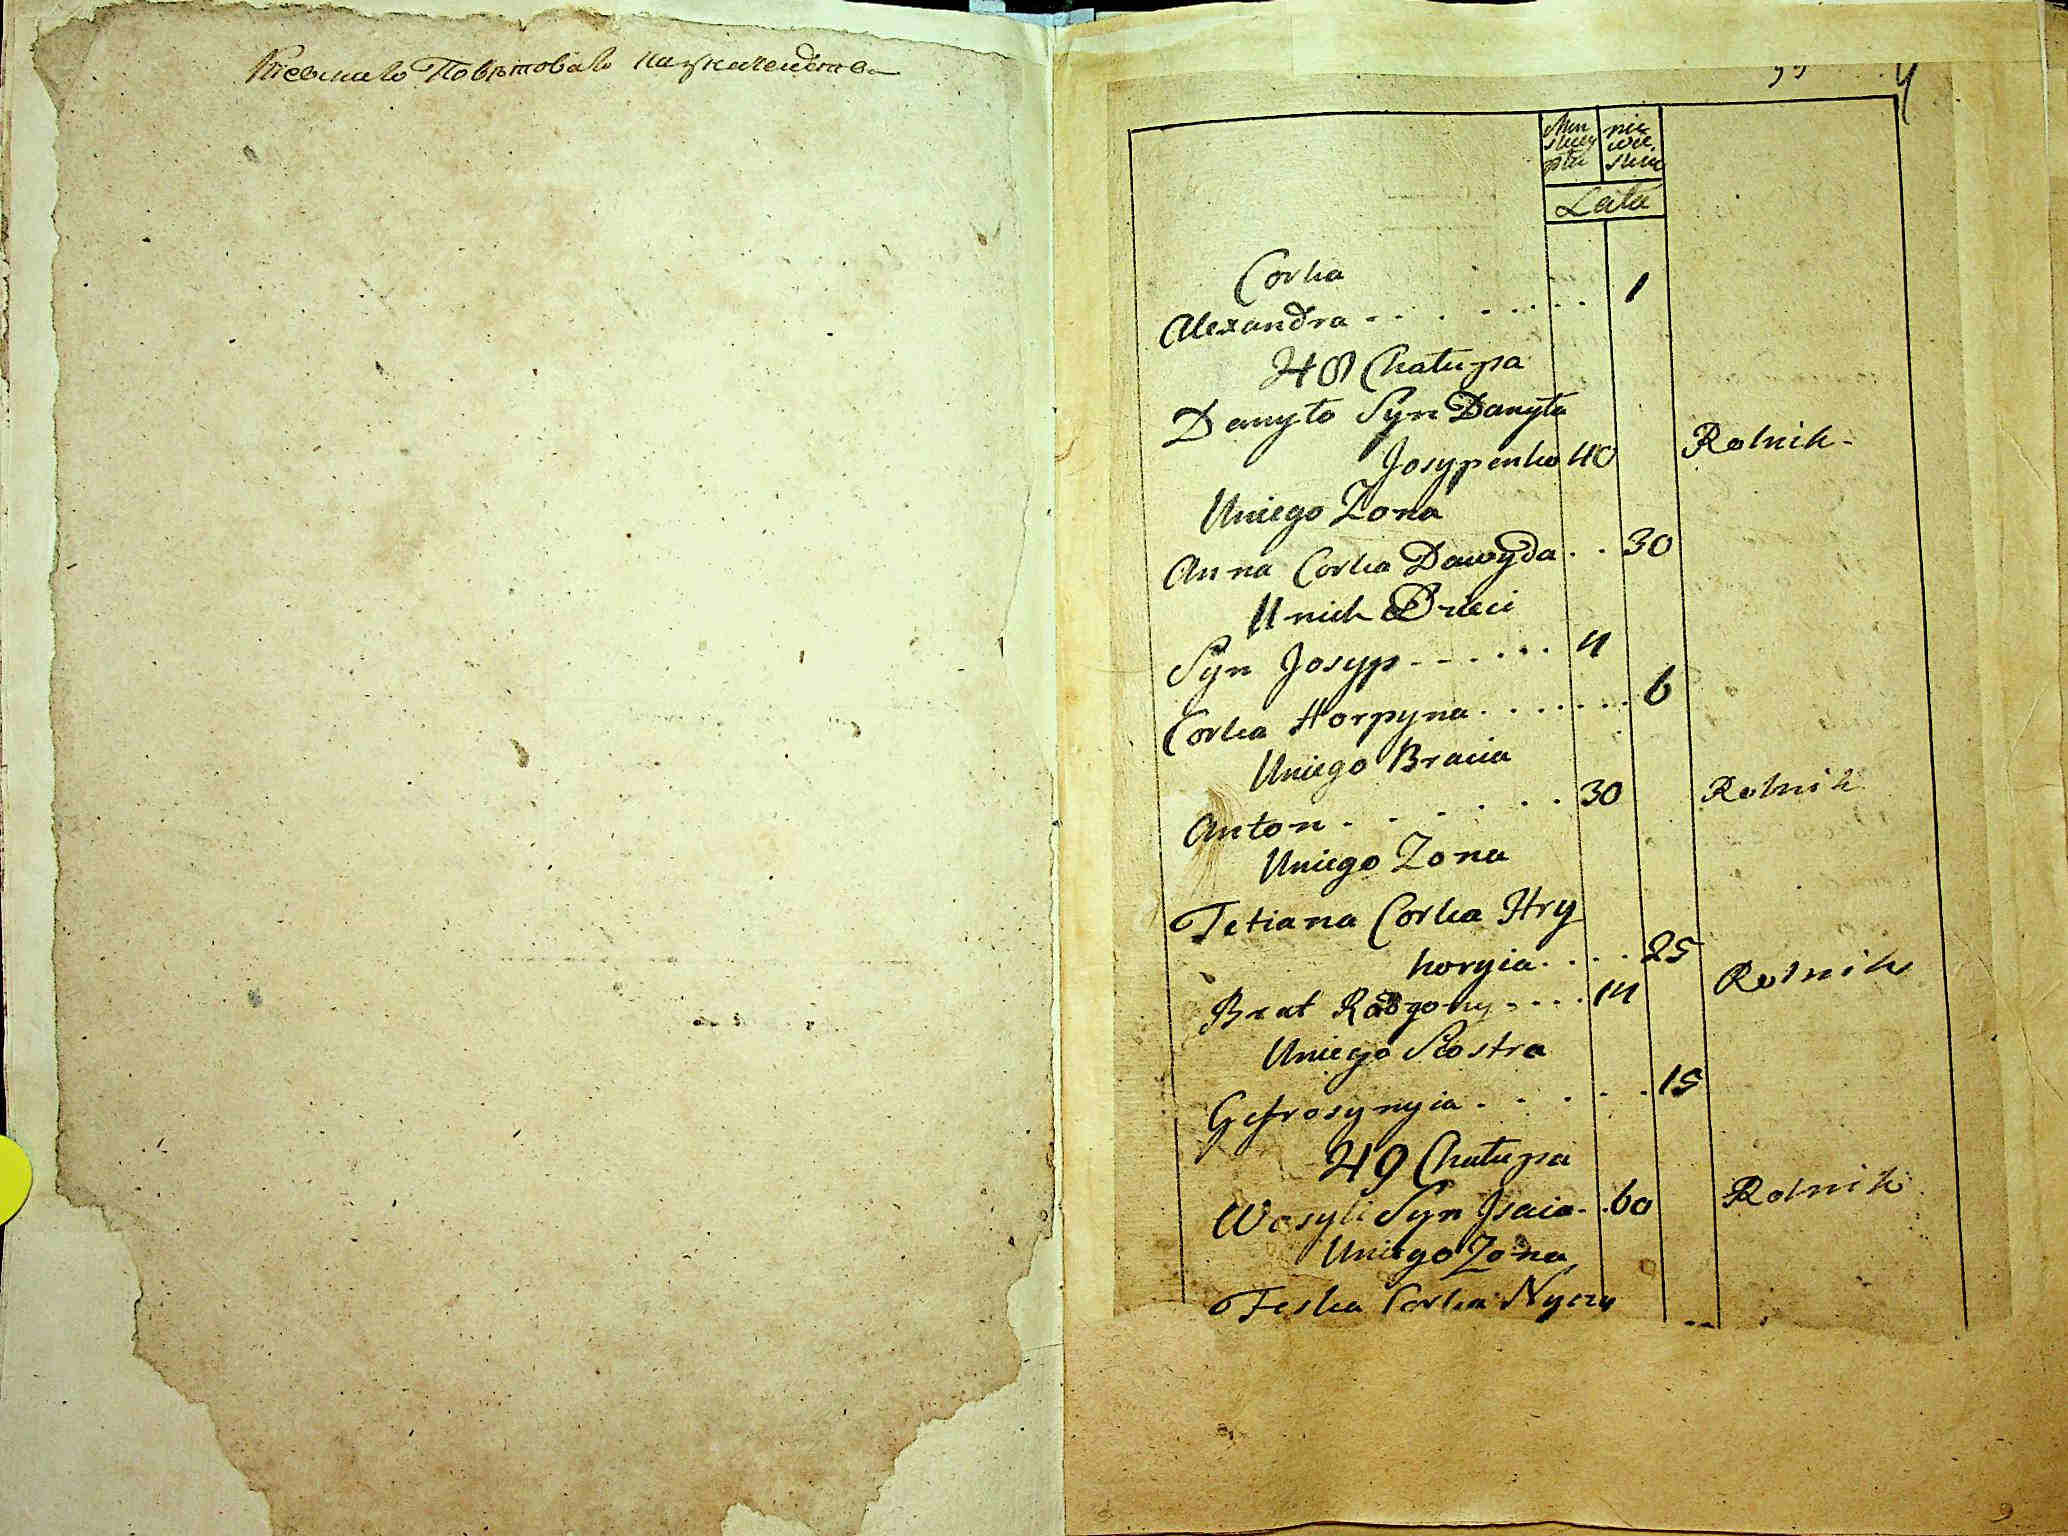 Кіевскаго Повѣтоваго Казначейства
Men nie
szczy wie
zna scie
Lata
Corka
Alexandra 1
48 Chałupa
Danyło Syn Danyła
Josypenko 40 Rolnik
Uniego Zona
Anna Corka Dawyda 30
Unich Dzieci
Syn Josyp 4
Corka Horpyna 6
Uniego Bracia
Anton 30 Rolnik
Uniego Zona
Tetiana Corka Hry
horyia 25
Brat 14 Rolnik
Uniego Siostra
Gefrosynyia 15
49 Chałupa
Wasyli Syn Jsaia 60 Rolnik
Uniego Zona
Feska Corka Nyczy